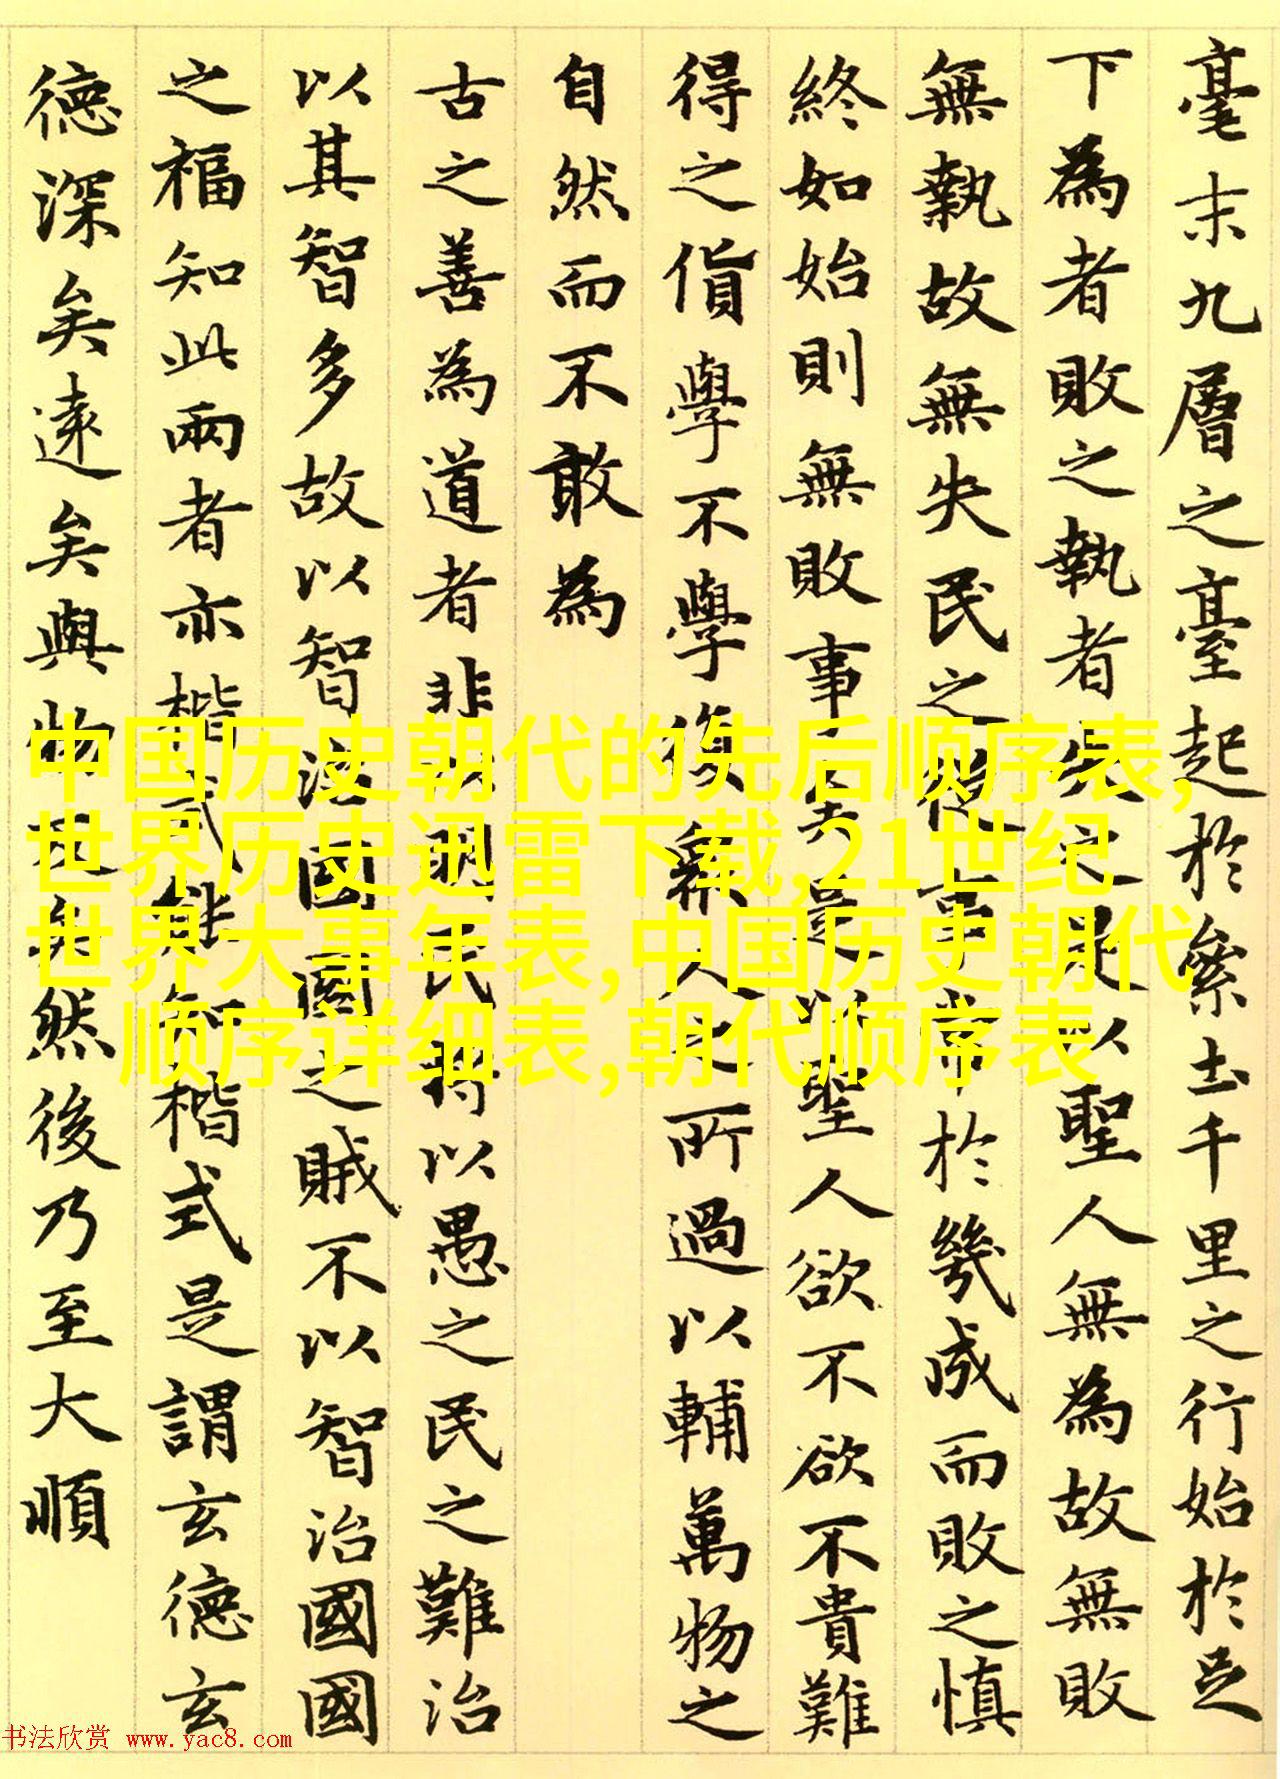 毫末九層之臺起於絫土千里之行始於足
下為者敗之執者失之是以聖人無為故無敗
無執故無失民之從事常於幾成而敗之慎
終如始則無敗事是聖人欲不欲不貴難
得之貨學不學復衆人之所過以輔萬物之
自然而不敢為
古之善為道者非以明民將以愚之民之難治
以其智多故以智治國國之賊不以智治國國
之福知此兩者亦楷式能知楷式是謂玄德玄
德深矣遠矣與物反矣然後乃至大順
中国历史朝代的先后顺序表,
世界历史迅雷下载,21世纪
世界大事年表,中国历史朝代
顺序详细表,朝代顺序表
书法欣赏 www.yac8.com